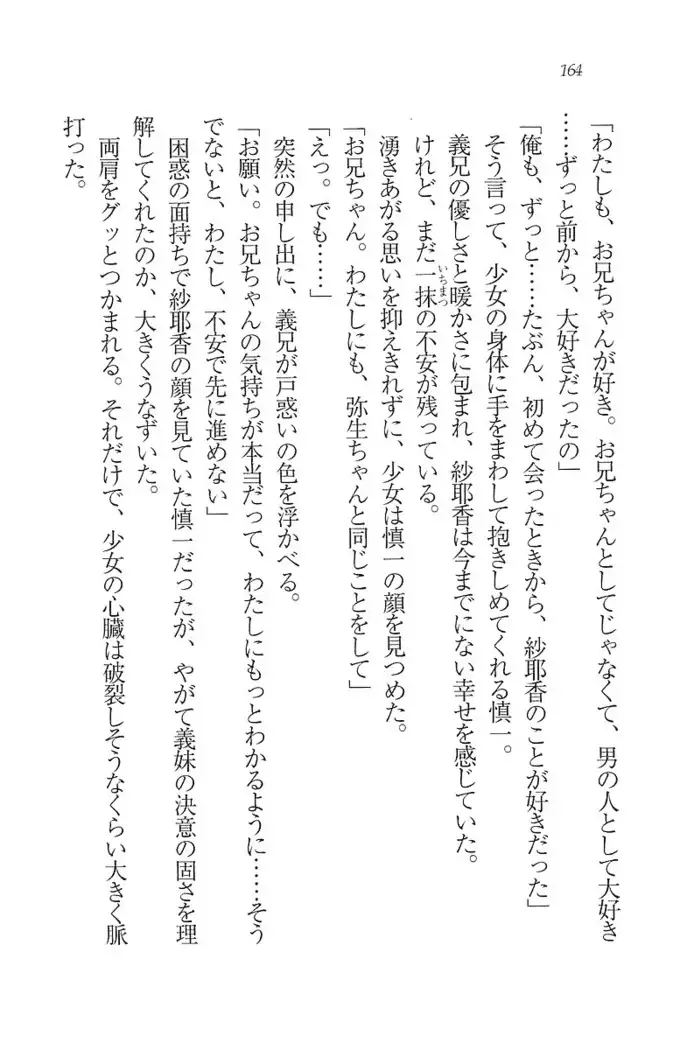 164
「わたしも、お兄ちゃんが好き。お兄ちゃんとしてじゃなくて、男の人として大好き
……ずっと前から、大好きだったの」
「俺も、ずっと……たぶん、初めて会ったときから、紗耶香のことが好きだった」
そう言って、少女の身体に手をまわして抱きしめてくれる慎一。
義兄の優しさと暖かさに包まれ、紗耶香は今までにない幸せを感じていた。
けれど、まだ一抹の不安が残っている。
いちまつ
湧きあがる思いを抑えきれずに、少女は慎一の顔を見つめた。
「お兄ちゃん。わたしにも、弥生ちゃんと同じことをして」
「えっ。でも……」
突然の申し出に、義兄が戸惑いの色を浮かべる。
「お願い。お兄ちゃんの気持ちが本当だって、わたしにもっとわかるように……そう
でないと、わたし、不安で先に進めない」
困惑の面持ちで紗耶香の顔を見ていた慎一だったが、やがて義妹の決意の固さを理
解してくれたのか、大きくうなずいた。
両肩をグッとつかまれる。それだけで、少女の心臓は破裂しそうなくらい大きく脈
打った。